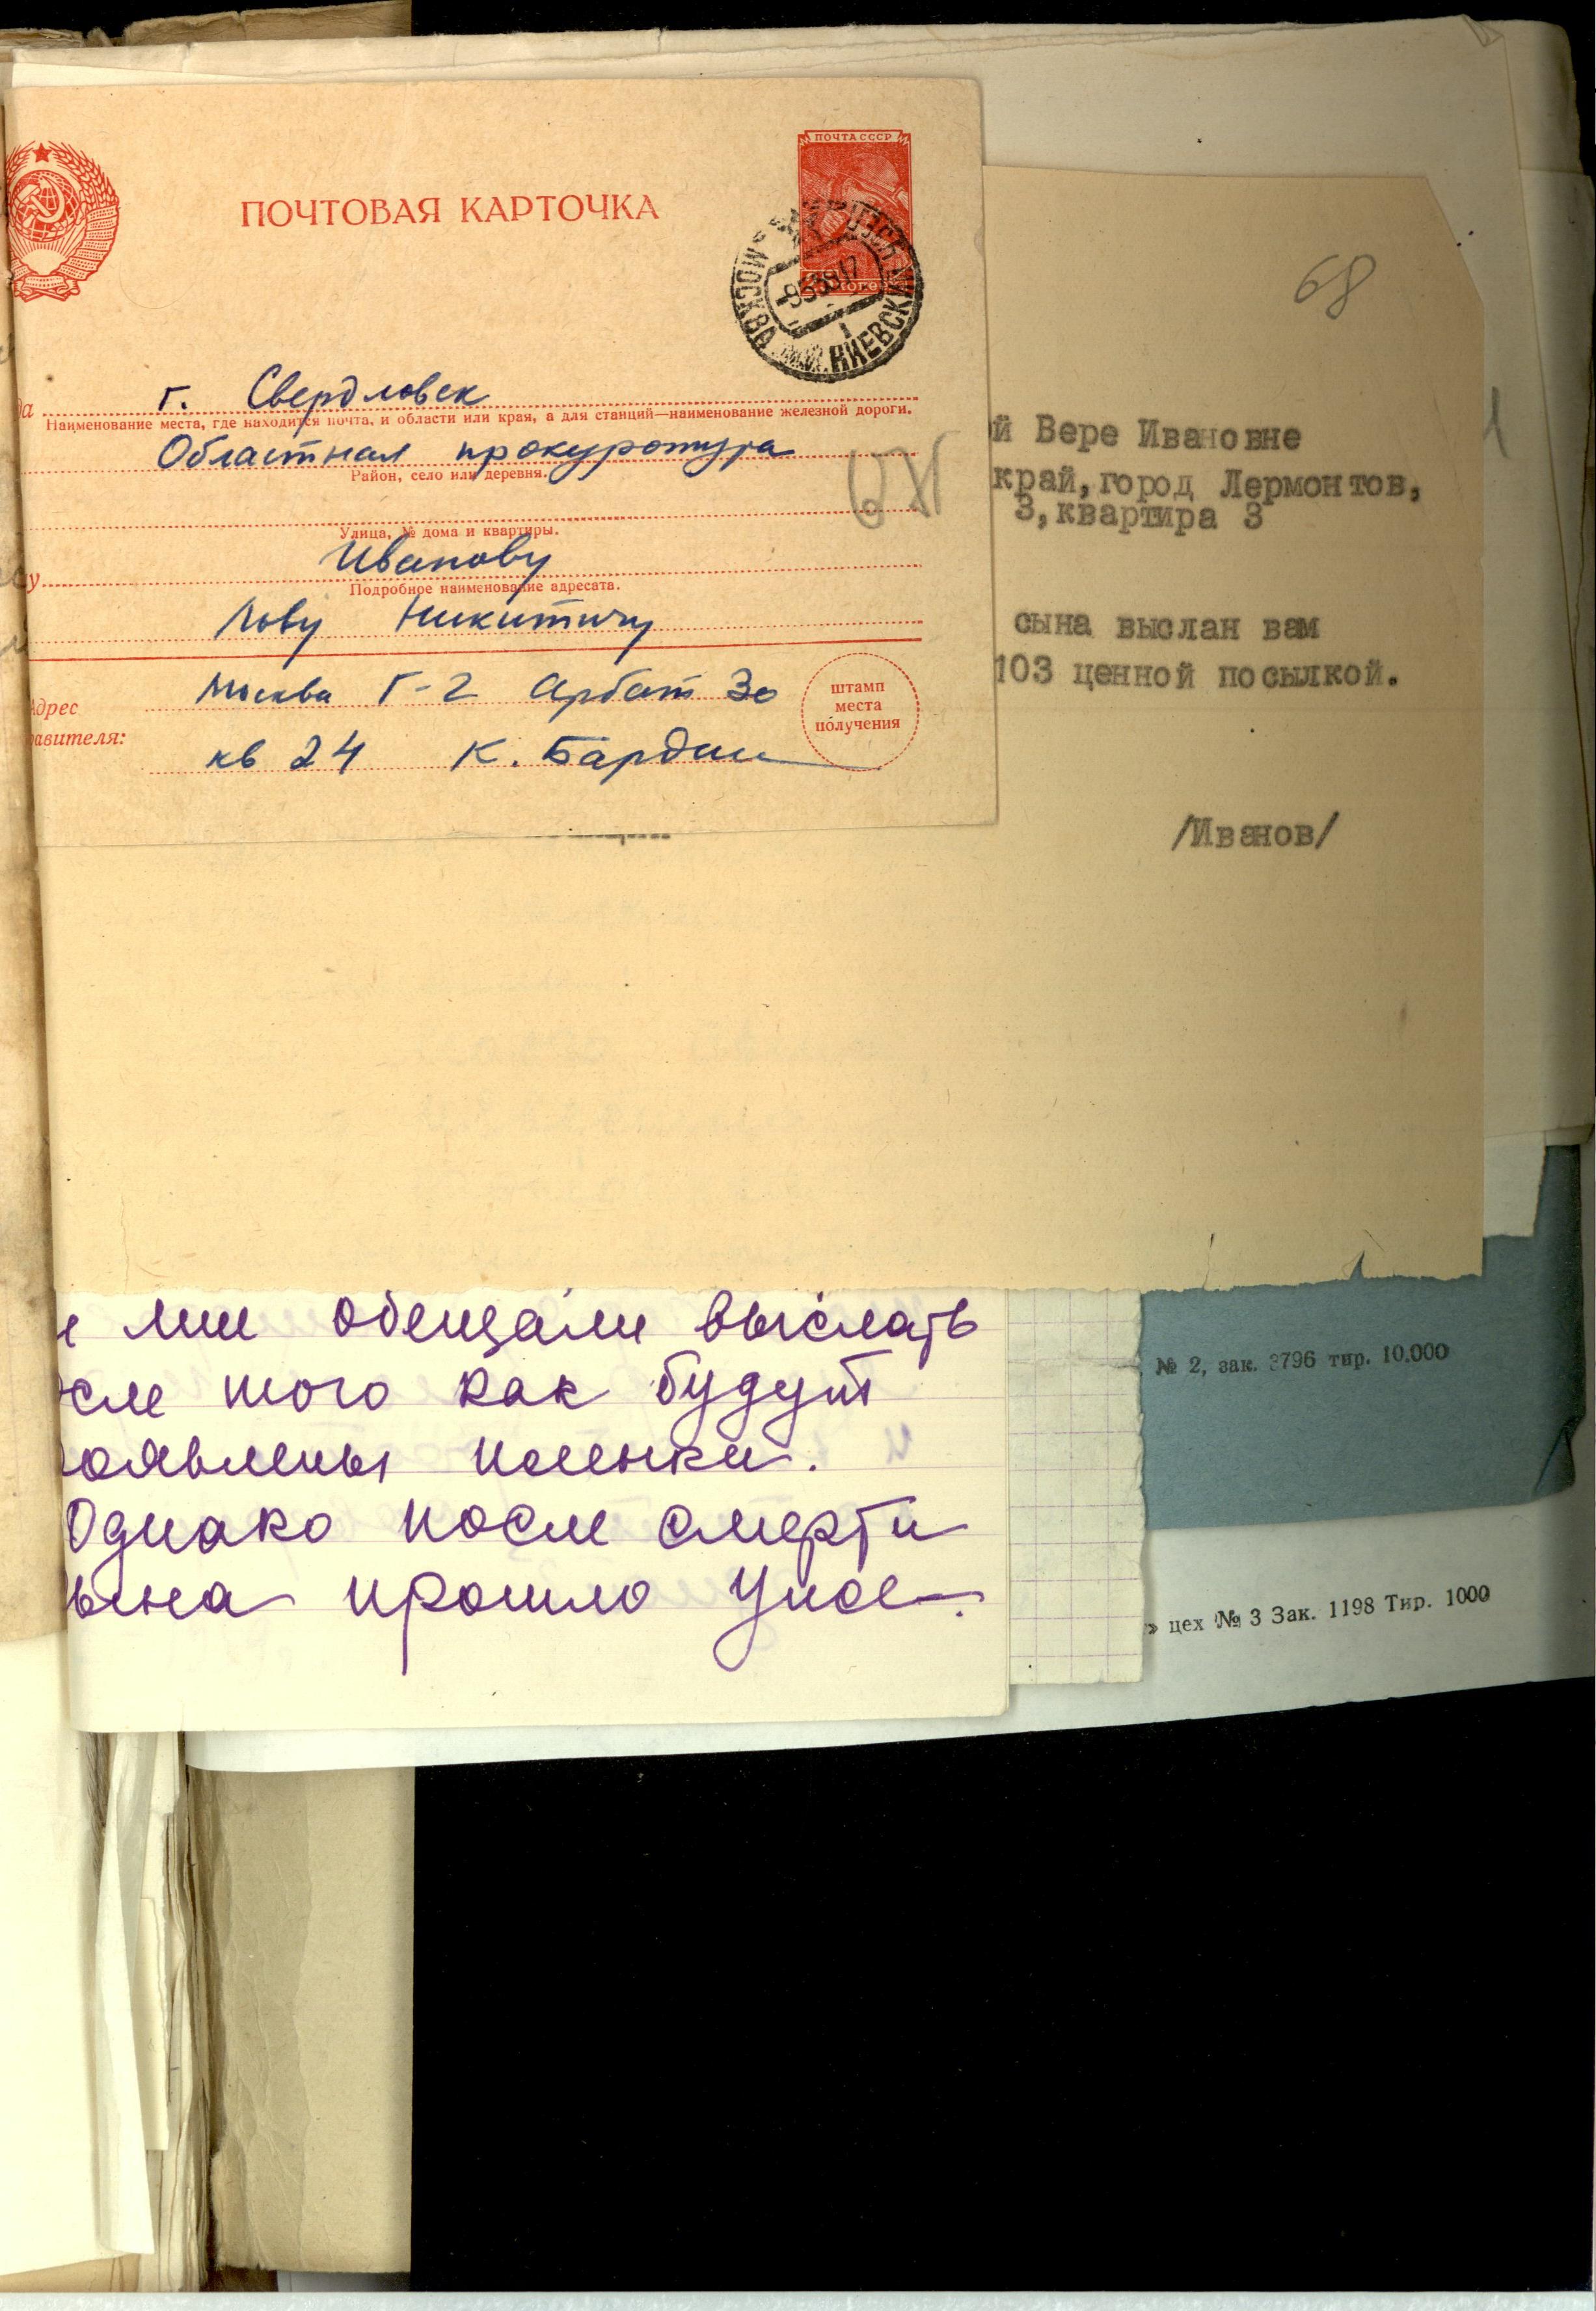 ПОЧТА СССР
ПОЧТОВАЯ КАРТОЧКА
МОСКВА КИЕВСКИЙ
68
да г. Свердловск
Наименование места, где находится почта, и области или края, а для станций—наименование железной дороги.
Областная прокуратура
Район, село или деревня.
Улица, № дома и квартиры.
Иванову
Подробное наименование адресата.
Льву Никитичу
Москва Г-2 Арбат 30
Адрес
равителя:
кв 24 К. Бардин
штамп
места
получения
й Вере Ивановне
край, город Лермонтов,
3, квартира 3
сына выслан вам
103 ценной посылкой.
/Иванов/
е мне обещали выслать
сле того как будут
роявлены пленки.
Однако после смерти
ына прошло уже
№ 2, зак. 3796 тир. 10.000
» цех № 3 Зак. 1198 Тир. 1000